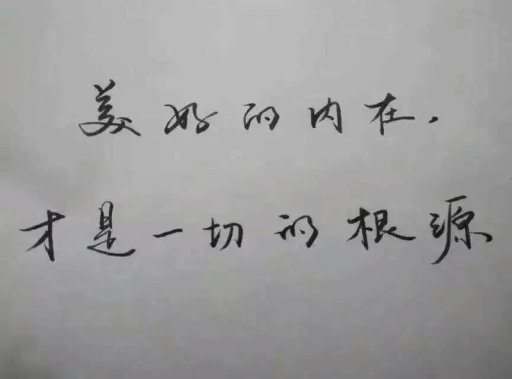 美好的内在.
才是一切的根源